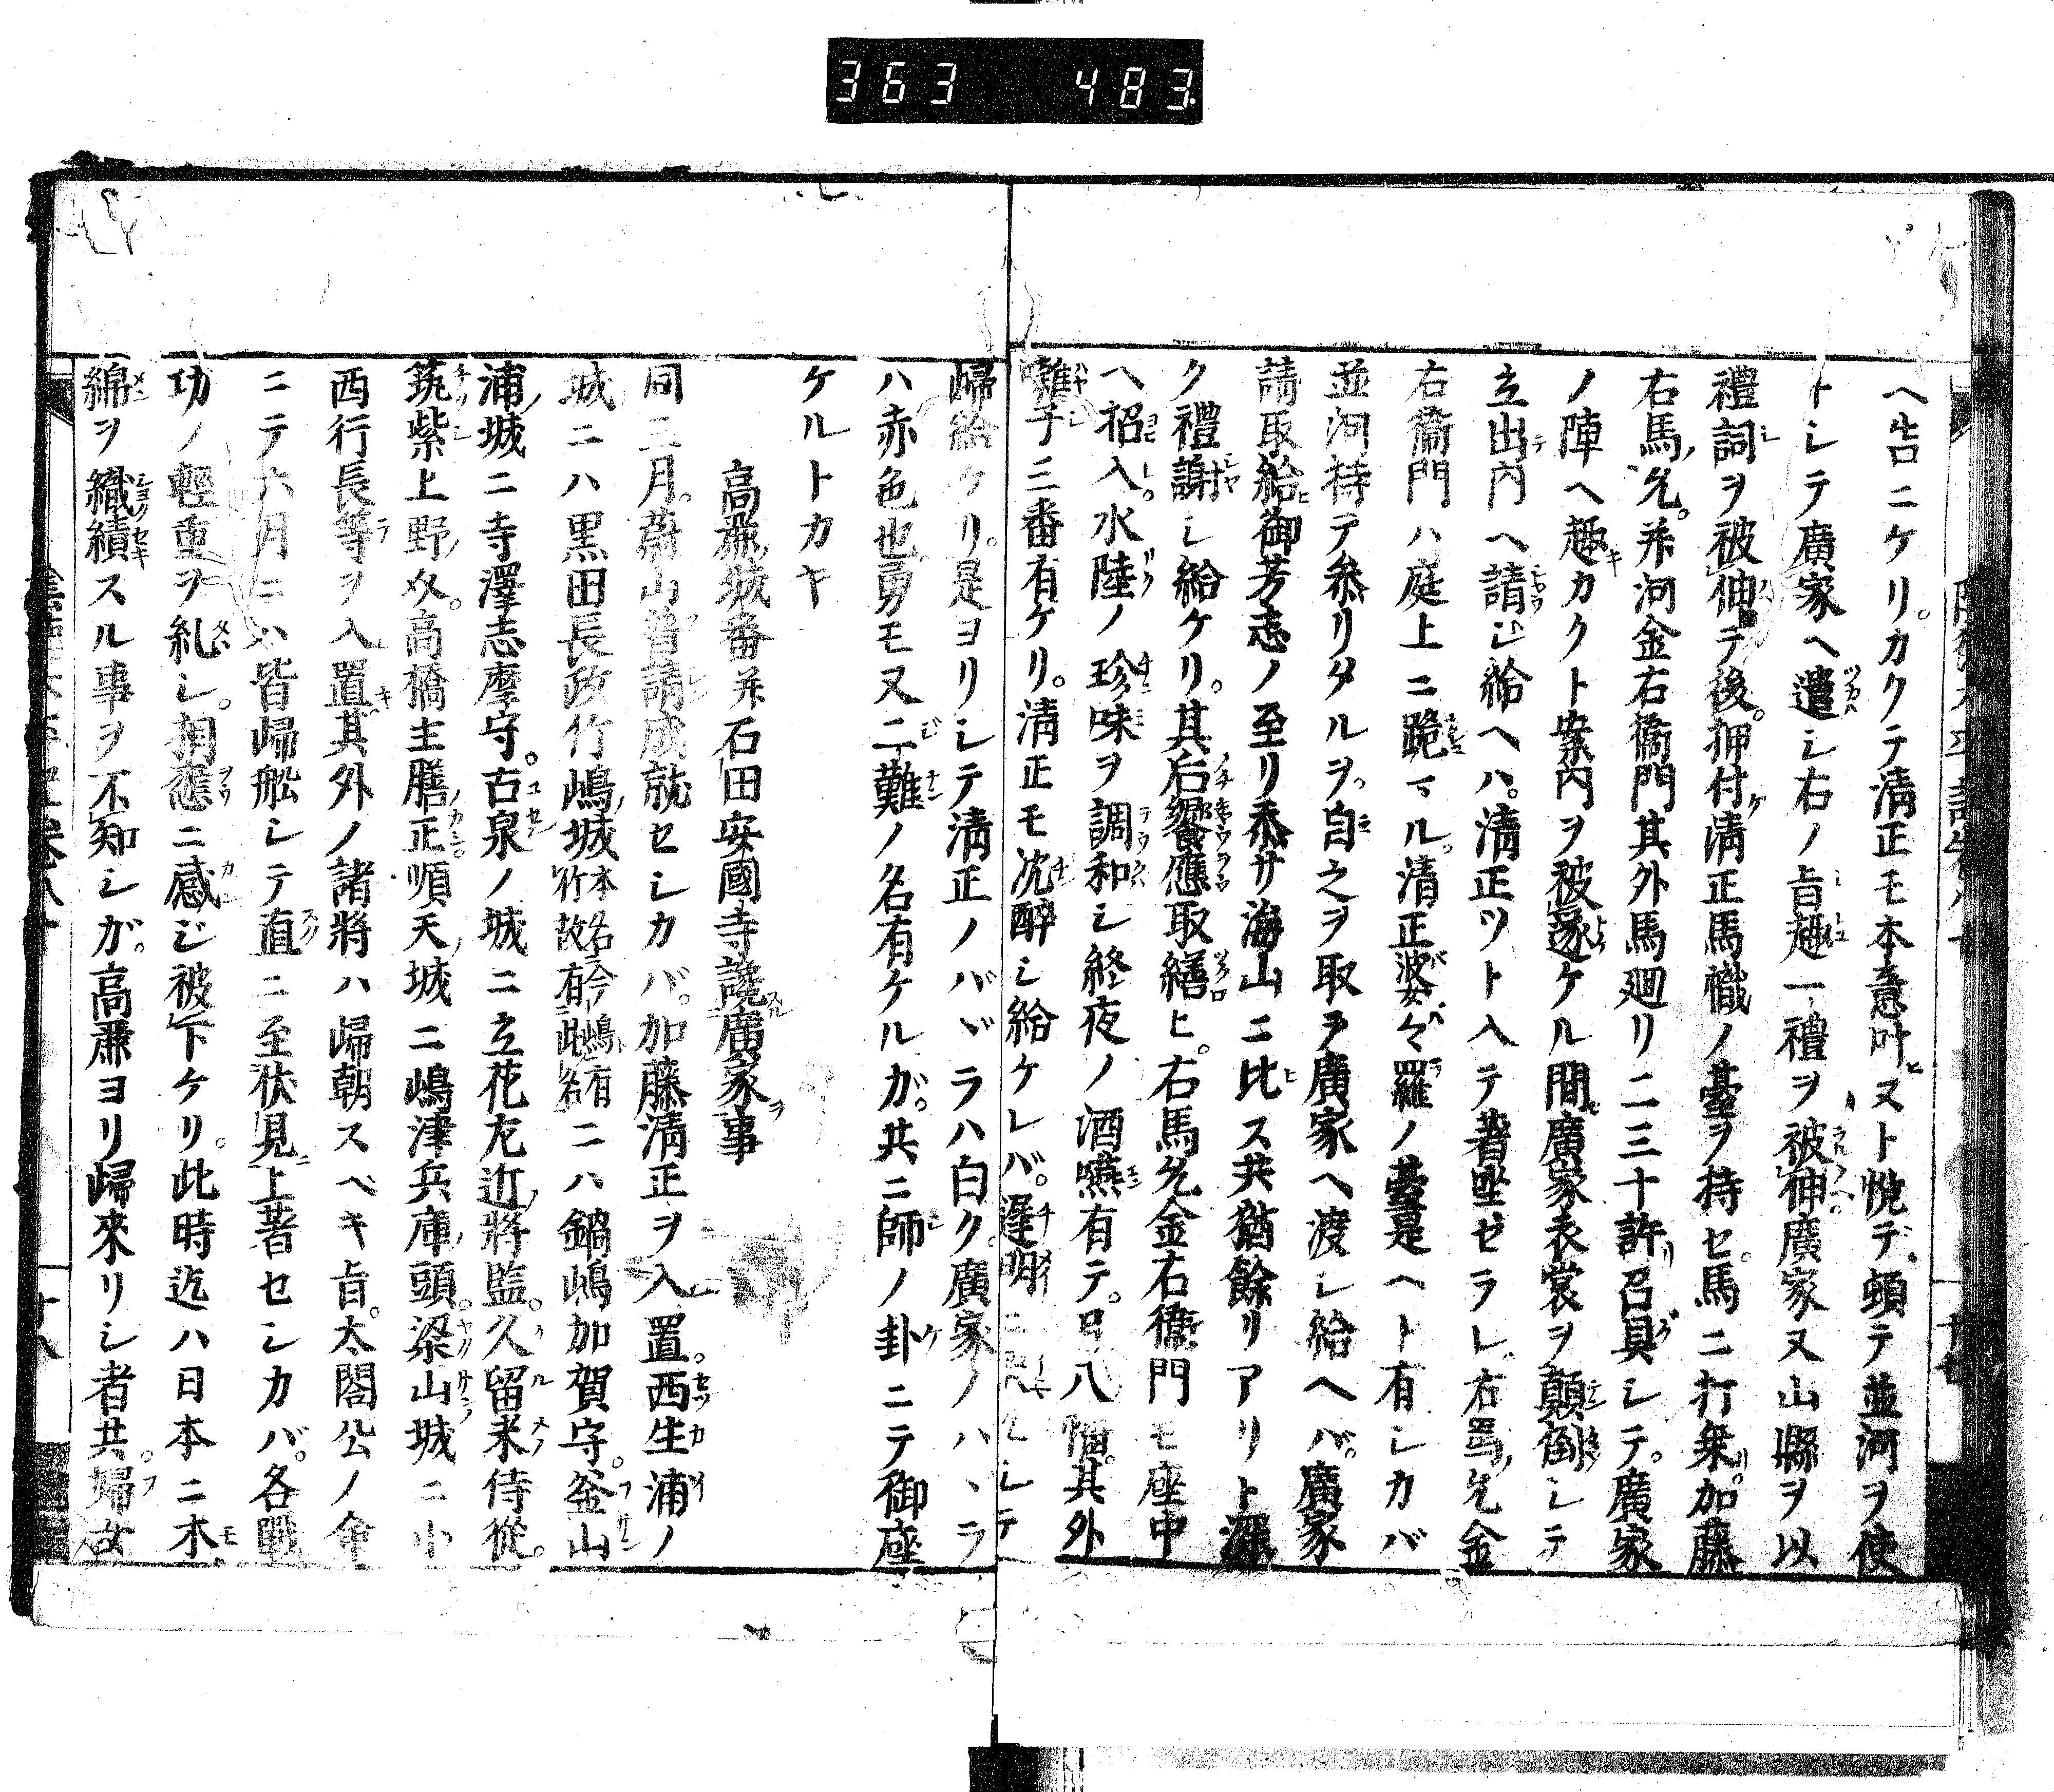 363 483
ヘ告ニケリ。カクテ清正モ本意叶ヌト悦テ。頓テ並河ヲ使
トシテ廣家ヘ遣シ右ノ旨趣一禮ヲ被伸廣家又山縣ヲ以
禮詞ヲ被伸テ後。押付清正馬幟ノ臺ヲ持セ。馬ニ打乗。加藤
右馬允。并河金右衞門其外馬廻リ二三十許召具シテ。廣家
ノ陣ヘ趣カクト案内ヲ被遂ケル間廣家衣裳ヲ顛倒シテ
立出内ヘ請ジ給ヘハ。清正ツト入テ著座ゼラレ。右馬允金
右衞門ハ庭上ニ跪マル。清正婆々羅ノ臺是ヘト有シカバ
並河持テ叅リタルヲ。自之ヲ取ラ廣家ヘ渡シ給ヘバ。廣家
請取給御芳志ノ至リ忝サ海山ニ比ス共猶餘リアリト深
ク禮謝シ給ケリ。其后饗應取繕ヒ。右馬允金右衞門モ座中
ヘ招入。水陸ノ珍味ヲ調和シ終夜ノ酒嚥有テ。呂八幡。其外
雜子三番有ケリ。清正モ沈醉シ給ケレバ。遲明ニシテ
歸給ケリ。是ヨリシテ清正ノバヾラハ白ク。廣家ノハヽラ
ハ赤色也。勇モ又二難ノ名有ケルガ。共ニ師ノ卦ニテ御座
ケルトカヤ
高麗城番并石田安國寺讒廣家事
同三月。蔚山普請成就セシカバ。加藤清正ヲ入置。西生浦ノ
城ニハ黒田長政竹嶋城本名今嶋有竹故有此名ニハ鍋嶋加賀守。釜山
浦城ニ寺澤志摩守。古泉ノ城ニ立花左近將監。久留米侍從。
筑紫上野々。高橋主膳正順天城ニ嶋津兵庫頭。梁山城ニ小
西行長等ヲ入置其外ノ諸將ハ歸朝スベキ旨。太閤公ノ命
ニテ六月ニハ皆歸舩シテ直ニ至伏見上著セシカバ。各戰
功ノ輕重ヲ糺シ。相應ニ感ジ被下ケリ。此時迄ハ日本ニ木
綿ヲ織績スル事ヲ不知シガ。高麗ヨリ歸來リシ者共。婦女